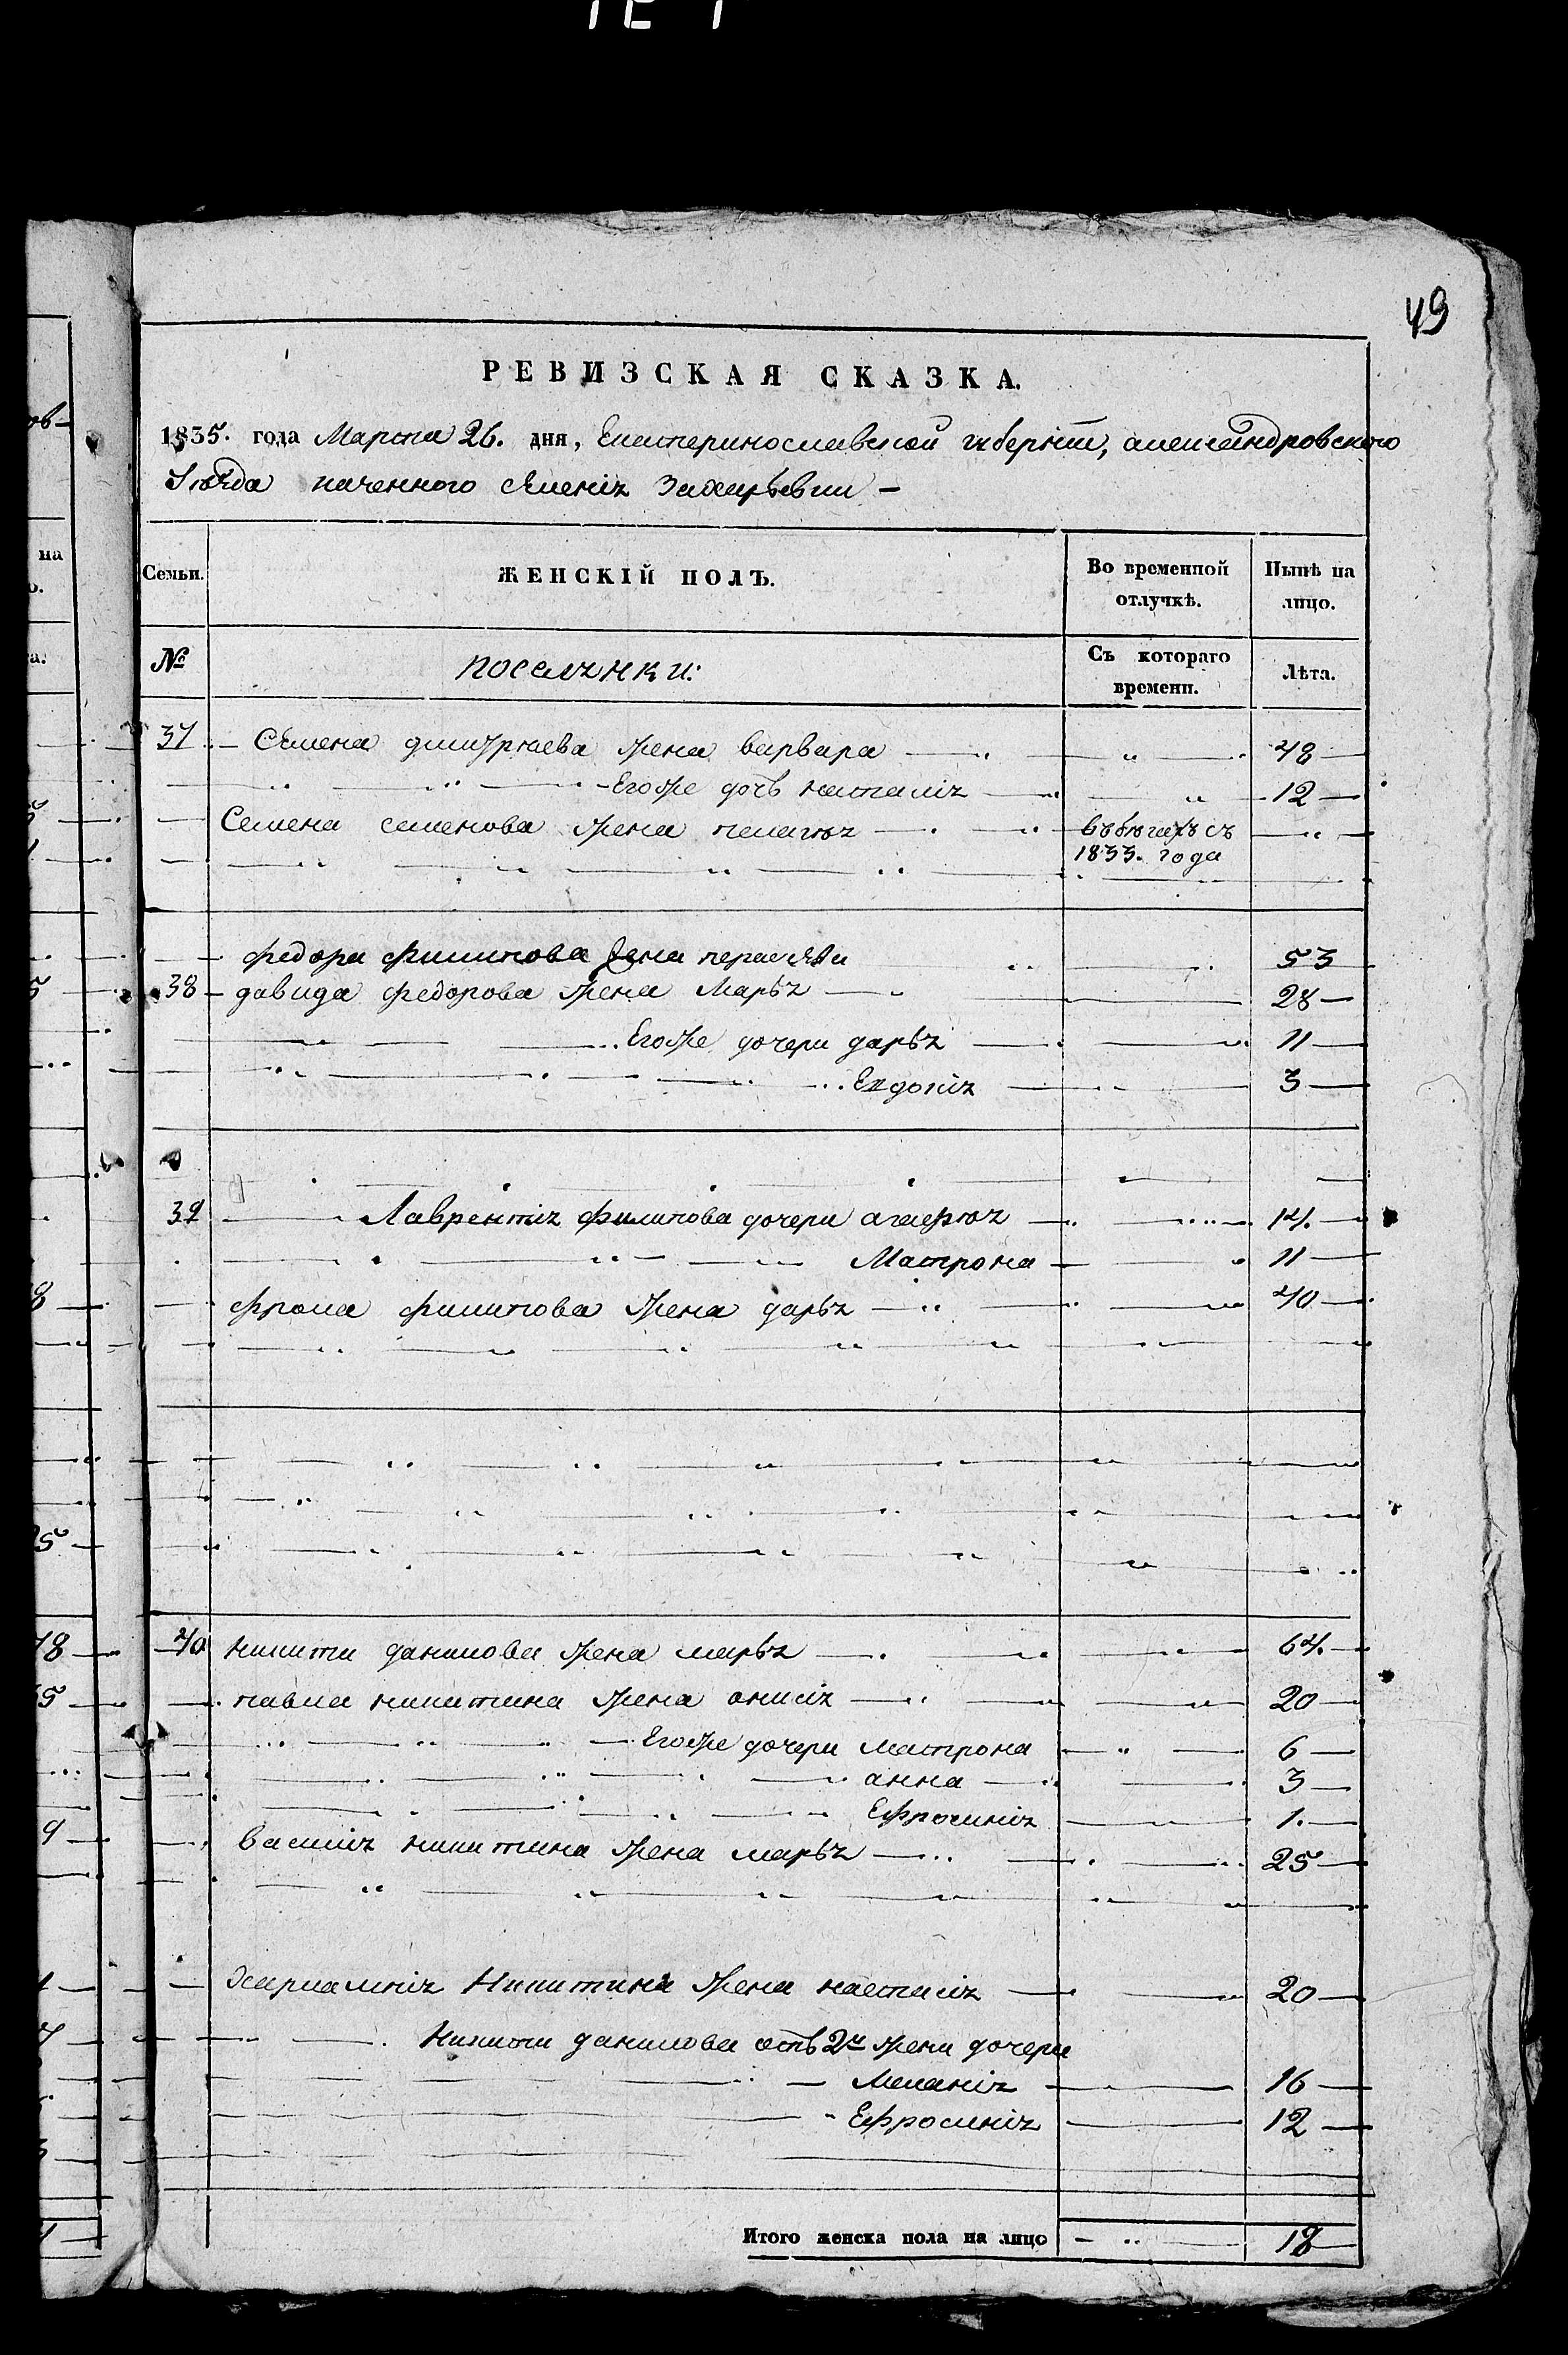 49
РЕВИЗСКАЯ СКАЗКА.
1835. года Марта 26. дня, Екатеринославской губернiи, александровского
Уѣзда казенного селенiя Захарьевки —
Семьи. ЖЕНСКIЙ ПОЛЪ. Во временной отлучкѣ. Нынѣ на лицо.
№ поселянки: Съ котораго времени. Лѣта.
37 Семена дмитриева жена варвара 48
Егоже дочь настасiя 12
Семена семенова жена пелагея въ бегахъ съ 1833. года
федора филипова жена 53
38 давида федорова жена Марья 28
Егоже дочери дарья 11
Евдокiя 3
39 Лаврентiя филипова дочери агафия 14.
Матрона 11
фрола филипова жена дарья 40
40 никити данилова жена марья 64.
павла никитина жена анисiя 20
Егоже дочери матрона 6
анна 3
Ефросинiя 1.
василiя никитина жена марья 25
Харлампiя Никитина жена настасiя 20
Никити данилова отъ 2й жени дочери
Меланiя 16
Ефросинiя 12
Итого женска пола на лицо 18